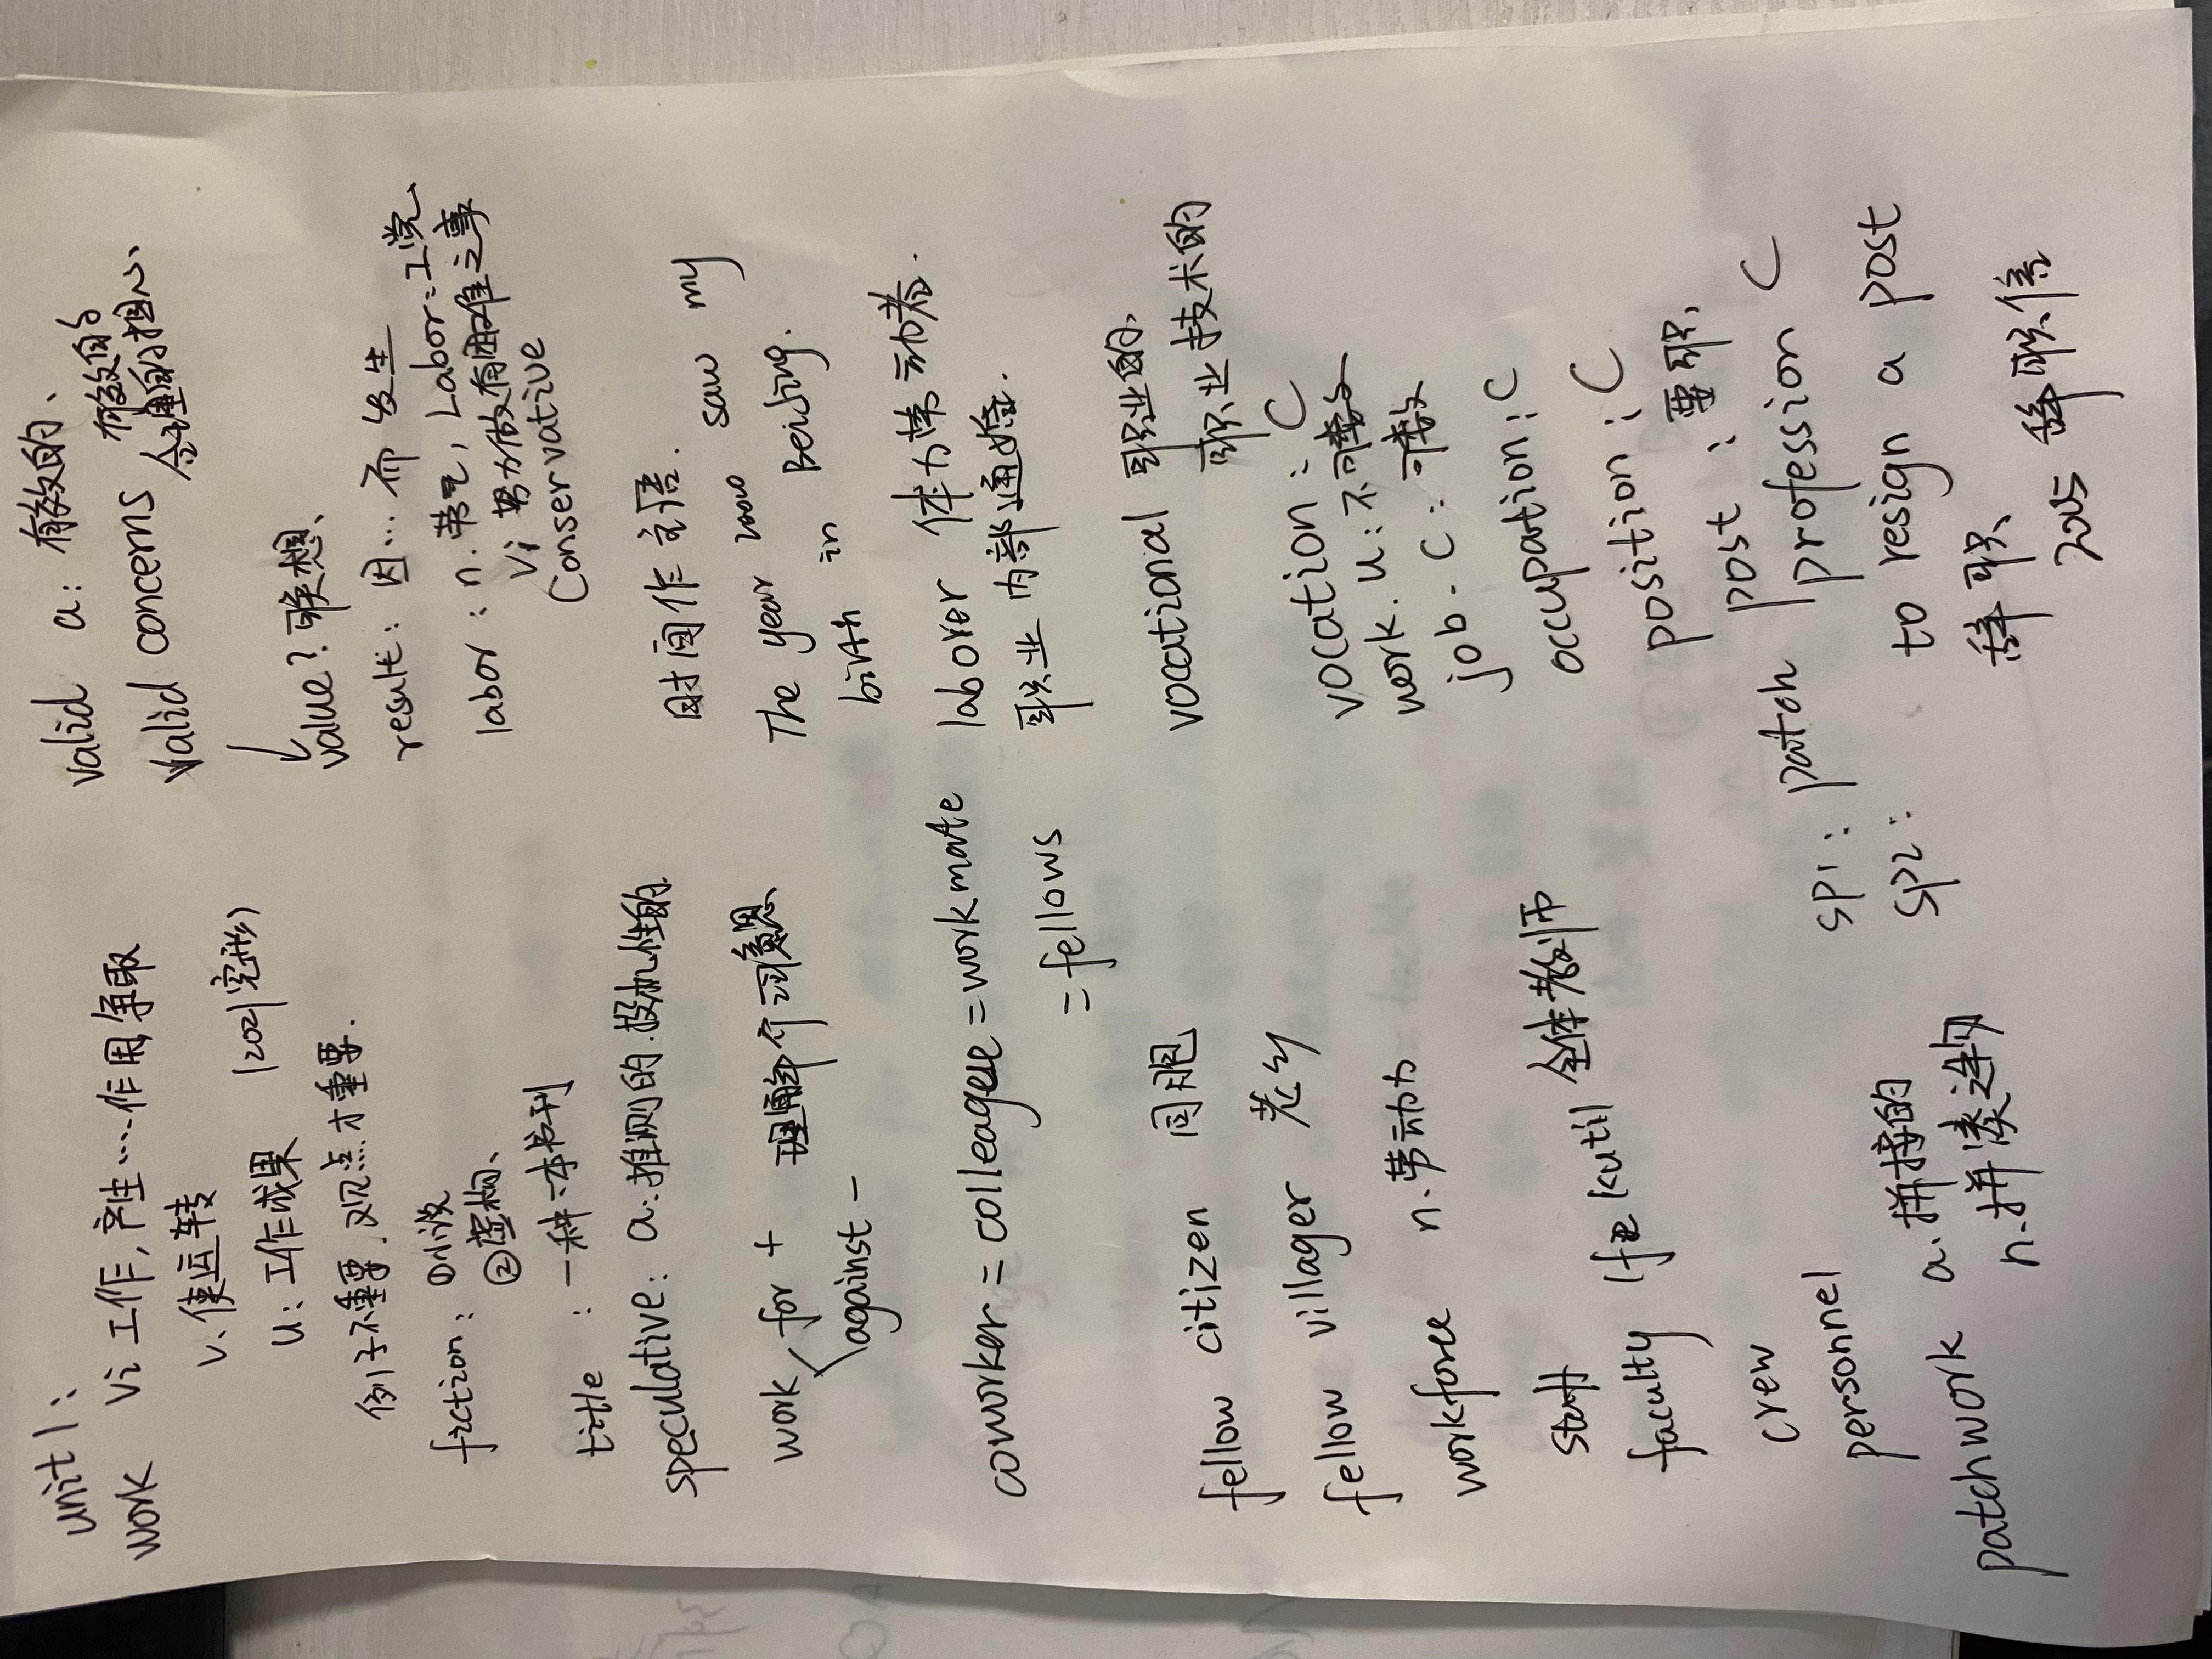 unit 1：
work vi 工作，产生……作用，争取
v、使运转
u：工作成果 (2021完形)
例子不重要，观点才重要．
fiction：①小说
②虚构、
title：一种/本书刊
speculative：a：推测的．投机性的．
work for + 理解介词意思
against −
coworker = colleageue = workmate
= fellows
fellow citizen 同胞
fellow villager 老乡
workforce n.劳动力
staff
faculty (fækuti) 全体教师
crew
personnel
patchwork a.拼接的
n.拼凑之物
valid a：有效的、
valid concerns 有效的
合理的担心、
↓
value？联想、
result：因…而发生
labor：n. 劳工，Labor：工党、
vi 努力做有困难之事
Conservative
时间作主语．
The year 2000 saw my
birth in Beijing.
laborer 体力劳动者．
职业内部通婚．
vocational 职业的、
职业技术的
vocation：C
work. u：不可数
job - C：可数
occupation：C
position：C
post：要职，
sp1：patch profession C
sp2： to resign a post
辞职
2005 辞职信